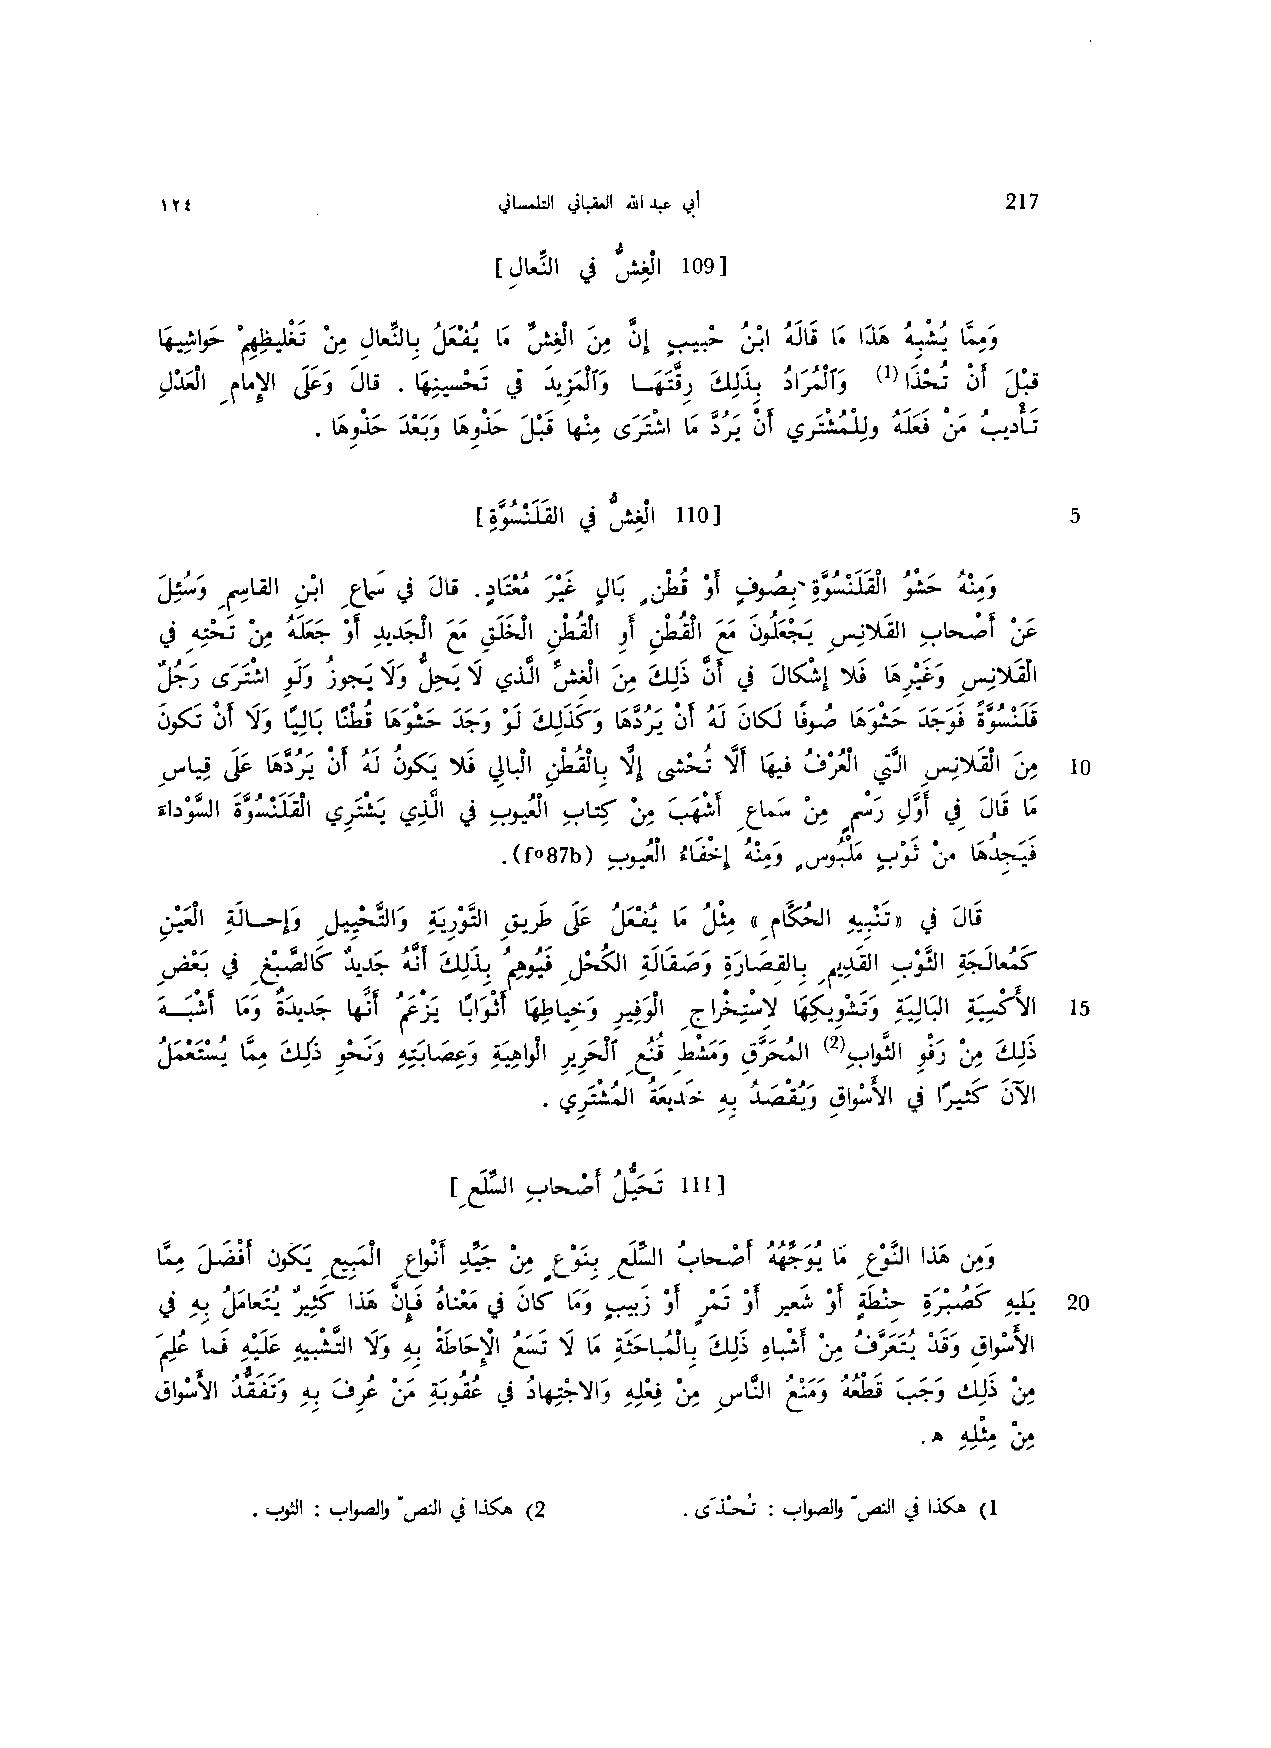 217 أبي عبد الله العقباني التلمساني ١٢٤
[109 الْغِشُّ في النِّعالِ]
وَمِمَّا يُشْبِهُ هَذَا مَا قَالَهُ ابْنُ حَبِيبٍ إنَّ مِنَ الْغِشِّ مَا يُفْعَلُ بِالنِّعَالِ مِنْ تَغْلِيظِهِمْ حَوَاشِيهَا
قَبْلَ أَنْ تُحْذَا (1) وَالْمُرَادُ بِذَلِكَ رِقَّتَهَا وَالْمَزِيدَ في تَحْسِينِهَا . قَالَ وَعَلَى الإمَامِ الْعَدْلِ
تَأدِيبُ مَنْ فَعَلَهُ وَلِلْمُشْتَرِي أَنْ يَرُدَّ مَا اشْتَرَى مِنْهَا قَبْلَ حَذْوِهَا وَبَعْدَ حَذْوِهَا .
5 [110 الْغِشُّ في القَلَنْسُوَّةِ]
وَمِنْهُ حَشْوُ الْقَلَنْسُوَّةِ بِصُوفٍ أَوْ قُطْنٍ بَالٍ غَيْرَ مُعْتَادٍ. قَالَ في سَمَاعِ ابْنِ القَاسِمِ وَسُئِلَ
عَنْ أصْحابِ القَلانِسِ يَجْعَلُونَ مَعَ الْقُطْنِ أو الْقُطْنِ الْخَلَقِ مَعَ الْجَدِيدِ أَوْ جَعَلَهُ مِنْ تَحْتِهِ في
القَلانِسِ وَغَيْرِهَا فَلا إشْكَالَ في أَنَّ ذَلِكَ مِنَ الْغِشِّ الَّذي لا يَحِلُّ وَلا يَجوزُ وَلَو اشْتَرَى رَجُلٌ
قَلَنْسُوَّةً فَوَجَدَ حَشْوَهَا صُوفًا لَكَانَ لَهُ أَنْ يَرُدَّهَا وَكَذَلِكَ لَوْ وَجَدَ حَشْوَهَا قُطْنًا بَالِيًا وَلا أَنْ تَكُونَ
10 مِنَ الْقَلانِسِ الَّتي الْعُرْفُ فيهَا ألاَّ تُحْشَى إلاَّ بِالْقُطْنِ الْبالي فَلا يَكُونُ لَهُ أَنْ يَرُدَّهَا عَلَى قِياسِ
مَا قَالَ في أَوَّلِ رَسْمٍ مِنْ سَماعِ أشْهَبَ مِنْ كِتابِ الْعُيوبِ في الَّذِي يَشْتَرِي الْقَلَنْسُوَّةَ السَّوْداءَ
فَيَجِدُهَا مِنْ ثَوْبٍ مَلْبُوسٍ ، وَمِنْهُ إخْفَاءُ الْعُيوبِ (fº87b).
قَالَ في «تَنْبِيهِ الحُكَّامِ» مِثْلُ مَا يُفْعَلُ عَلَى طَرِيقِ التَّوْرِيَةِ وَالتَّخْيِيلِ وَإحَـالَةِ الْعَيْنِ
كَمُعَالَجَةِ الثَّوْبِ القَدِيمِ بِالقِصَارَةِ وَصِقَالَةِ الكُحْلِ فَيُوهِمُ بِذَلِكَ أَنَّهُ جَدِيدٌ كَالصَّبْغِ في بَعْضِ
15 الأكْسِيَةِ البَالِيَةِ وَتَشْوِيكِهَا لاسْتِخْرَاجِ الْوَفِيرِ وَخِيَاطِهَا أَثْوَابًا يَزْعَمُ أَنَّها جَدِيدَةٌ وَمَا أشْبَــهَ
ذَلِكَ مِنْ رَفْوِ الثَّوابِ(2) المُحَرَّقِ وَمَشْطِ قُنُعِ الْحَرِيرِ الْوَاهِيَةِ وَعِصَابَتِهِ وَنَحْوِ ذَلِكَ مِمَّا يُسْتَعْمَلُ
الآنَ كَثيرًا في الأسْواقِ وَيُقْصَدُ بِهِ خَدِيعَةُ الْمُشْتَرِي .
[111 تَحَيُّلُ أصْحابِ السِّلَعِ]
وَمِن هذا النَّوْعِ مَا يُوَجِّهُهُ أصْحابُ السِّلَعِ بِنَوْعٍ مِنْ جَيِّدِ أنْواعِ الْمَبِيعِ يَكون أفْضَلَ مِمَّا
20 يَلِيهِ كَصُبْرَةِ حِنْطَةٍ أَوْ شَعيرٍ أَوْ تَمْرٍ أَوْ زَبيبٍ وَمَا كانَ في مَعْنَاهُ فَإنَّ هَذا كَثيرٌ يُتَعامَلُ بِهِ في
الأسْواقِ وَقَدْ يُتَعَرَّفُ مِنْ أشْباهِ ذَلِكَ بِالْمُبَاحَثَةِ مَا لا تَسَعُ الإحَاطَةُ بِهِ وَلا التَّنْبِيهِ عَلَيْهِ فَمَا عُلِمَ
مِنْ ذَلِكَ وَجَبَ قَطْعُهُ وَمَنْعُ النَّاسِ مِنْ فِعْلِهِ وَالاجْتِهادُ في عُقُوبَةِ مَنْ عُرِفَ بِهِ وَتَفَقُّدُ الأسْواقِ
مِنْ مِثْلِهِ ه.
1) هكذا في النصّ والصواب : تُحْذَى .
2) هكذا في النصّ والصواب : الثوب .